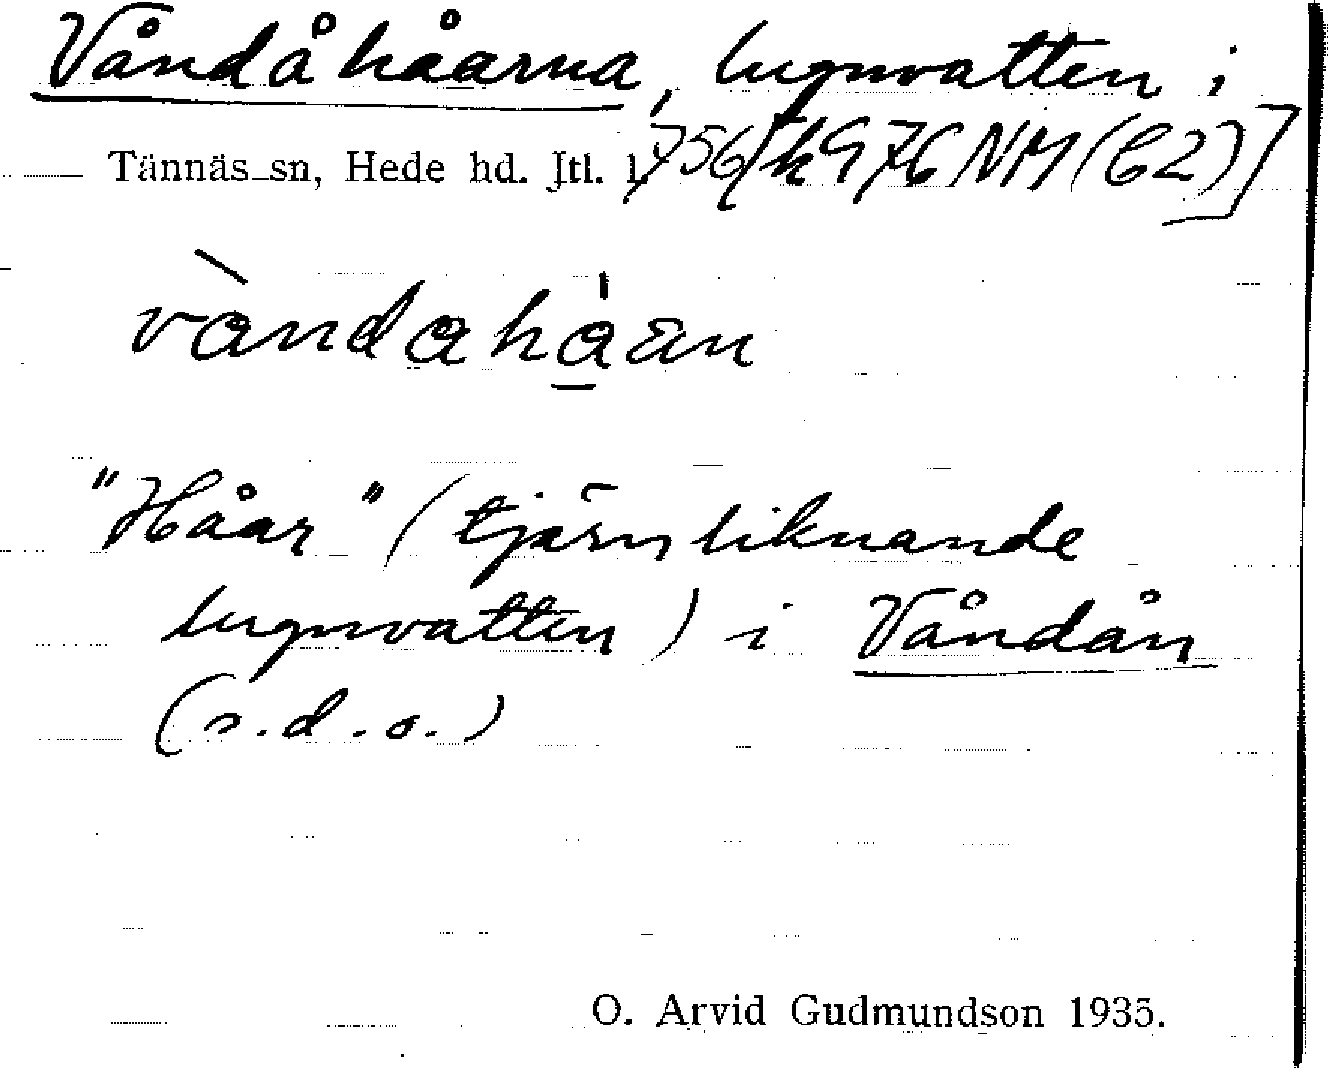 Våndåhåarna, lugnvatten i
Tännäs sn, Hede hd. Jtl. l.
vàndahàan
"Håar" (tjärnliknande
lugnvatten) i Våndån
(s.d.o.)
O. Arvid Gudmundson 1935.